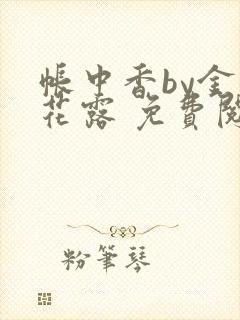 帳中香by金
花露 免費閱
粉筆琴